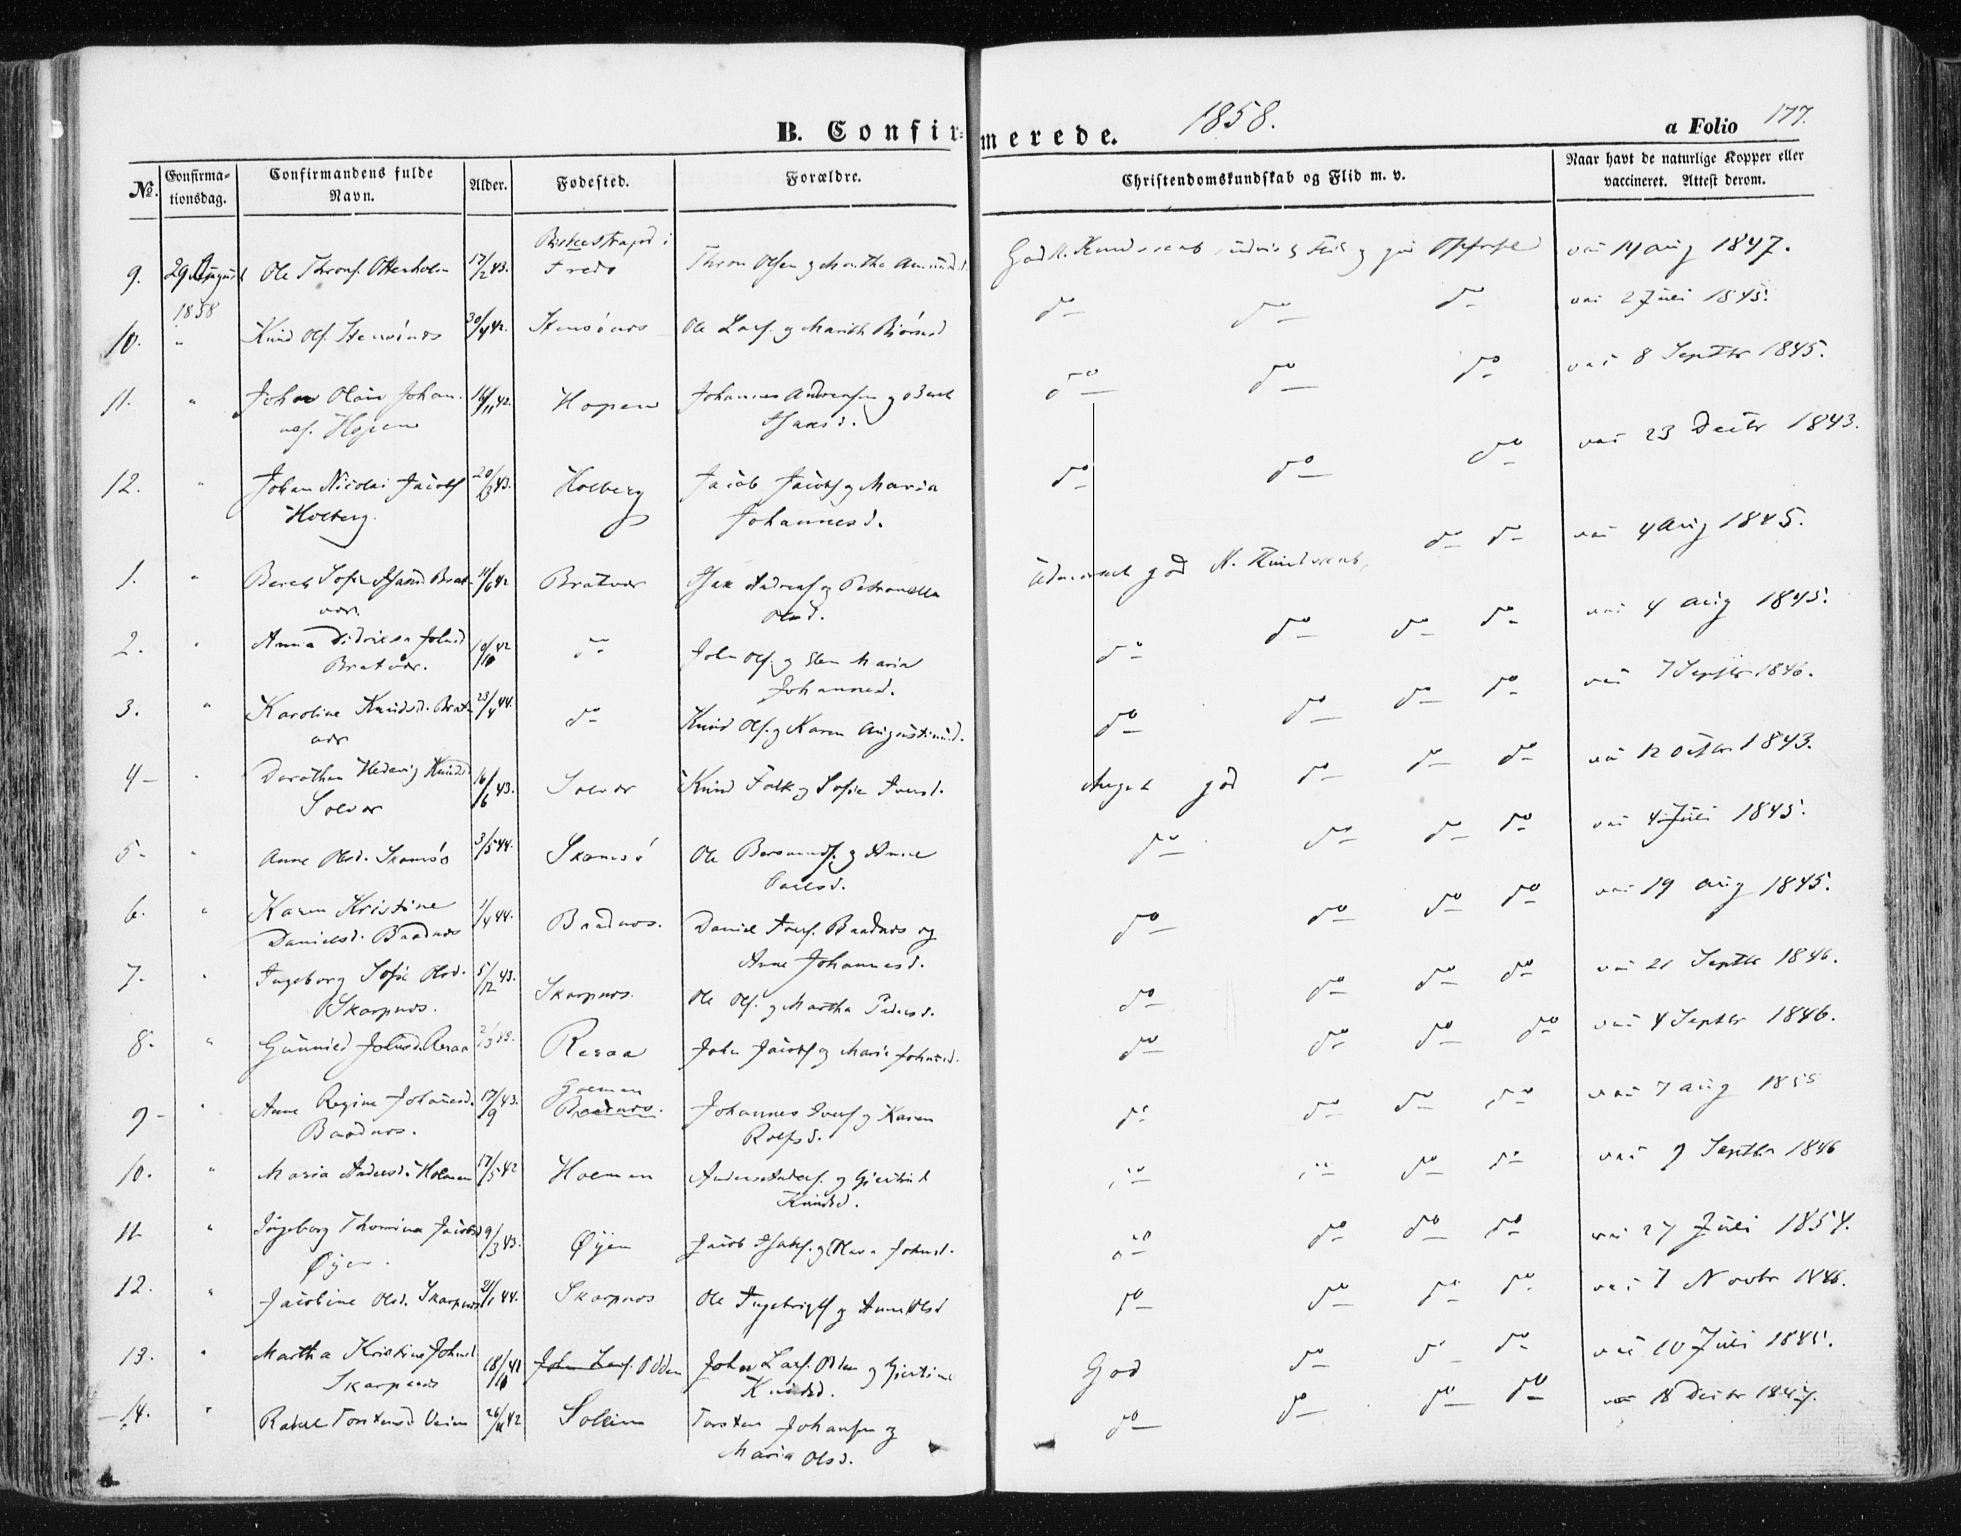 B. Confirmerede. 1858. a Folio 177.
No. Confirmationsdag. Confirmandens fulde Navn. Alder. Fødested. Forældre. Christendomskundskab og Flid m. v. Naar havt de naturlige Kopper eller vaccineret. Attest derom.
9. 29 August 1858 Ole Throns. Otterholm 17/2 43. i Fredø Thron Olsen og Marthe God K. Kundskab Flid og god vac 14 aug 1847.
10. " Knud Ols. Stensønes 30/4 42. Stensønes Ole Lars. og Marith do do do vac 2 Juli 1845.
11. " Johan Olaus Johannes. Hopen 16/11 42. Hopen Johannes Andreasen og Beret Isaksd. do do do vac 8 Septbr 1845.
12. " Johan Nicolai Jacobs. Holberg. 20/3 43. Holberg Jacob Jacobs. og Maria Johannesd. do do do vac 23 Decbr 1843.
1. " Bereth Sofie Isaksd Bratvær. 11/6 42 Bratvær Isak Andreas. og Petronella Olsd. Udmærket god K. Kundskab, do do vac 4 aug 1845.
2. " Anna Didrikea Johnsd Bratvær. 10/10 42 do John Ols. og Ellen Maria Johannesd. do do do do vac 4 aug 1845.
3. " Karoline Knudsd. Bratvær 23/4 44. do Knud Ols. og Karen Augustinusd. do do do do vac 7 Septbr 1846.
4 - " Dorothea Hedevig Knudsd Solvær 16/6 43. Solvær Knud Falk og Sofie Iversd. Meget god do do do vac 12 Octbr 1843.
5 - " Anne Olsd. Skomsø 3/5 44. Skomsø Ole og Anne Paulsd. do do do do vac 4 Juli 1845.
6. " Karen Kristine Danielsd. Baadnes 1/4 44. Baadnes. Daniel Ivers. Baadnes og Anne Johannesd. do do do do vac 19 aug 1845.
7. " Ingeborg Sofie Olsd. Skarpnes. 5/12 43. Skarpnes. Ole Ols. og Martha Pedersd. do do do do vac 21 Septbr 1846.
8. " Gunnild Johnsd. Rosaa 2/3 43. Rosaa John Jacobs. og Marie Johnsd. do do do do vac 4 Septbr 1846.
9 - " Anne Regine Johannesd. Baadnes. 17/9 43. Holman Baadnes. Johannes Ivers. og Karen Rolfsd. do do do do vac 7 aug 1855
10. " Maria Andersd. Holman 17/5 42 Holman Anders Anders. og Gjertrud Knudsd. do do do do vac 9 Septbr 1846
11. " Ingeborg Thomina Jacobsd Øyen. 9/3 43. Øyen Jacob Isaks. og Johnsd. do do do do vac 27 Juli 1854.
12. " Jacobine Olsd. Skarpnes 21/1 44. Skarpnes Ole Ingebrigts. og Anne Olsd do do do do vac 7 Novbr 1846.
13. " Martha Kristine Johnsd Skarpnes 18/10 41 John Lars. Odden John Lars. Odden og Gjertine Knudsd. God do do do vac 10 Juli 1845.
14. " Rakel Torstensd 26/11 42 Torsten Johansen og Maria Olsd. do do do do vac 18 Decbr 1847.